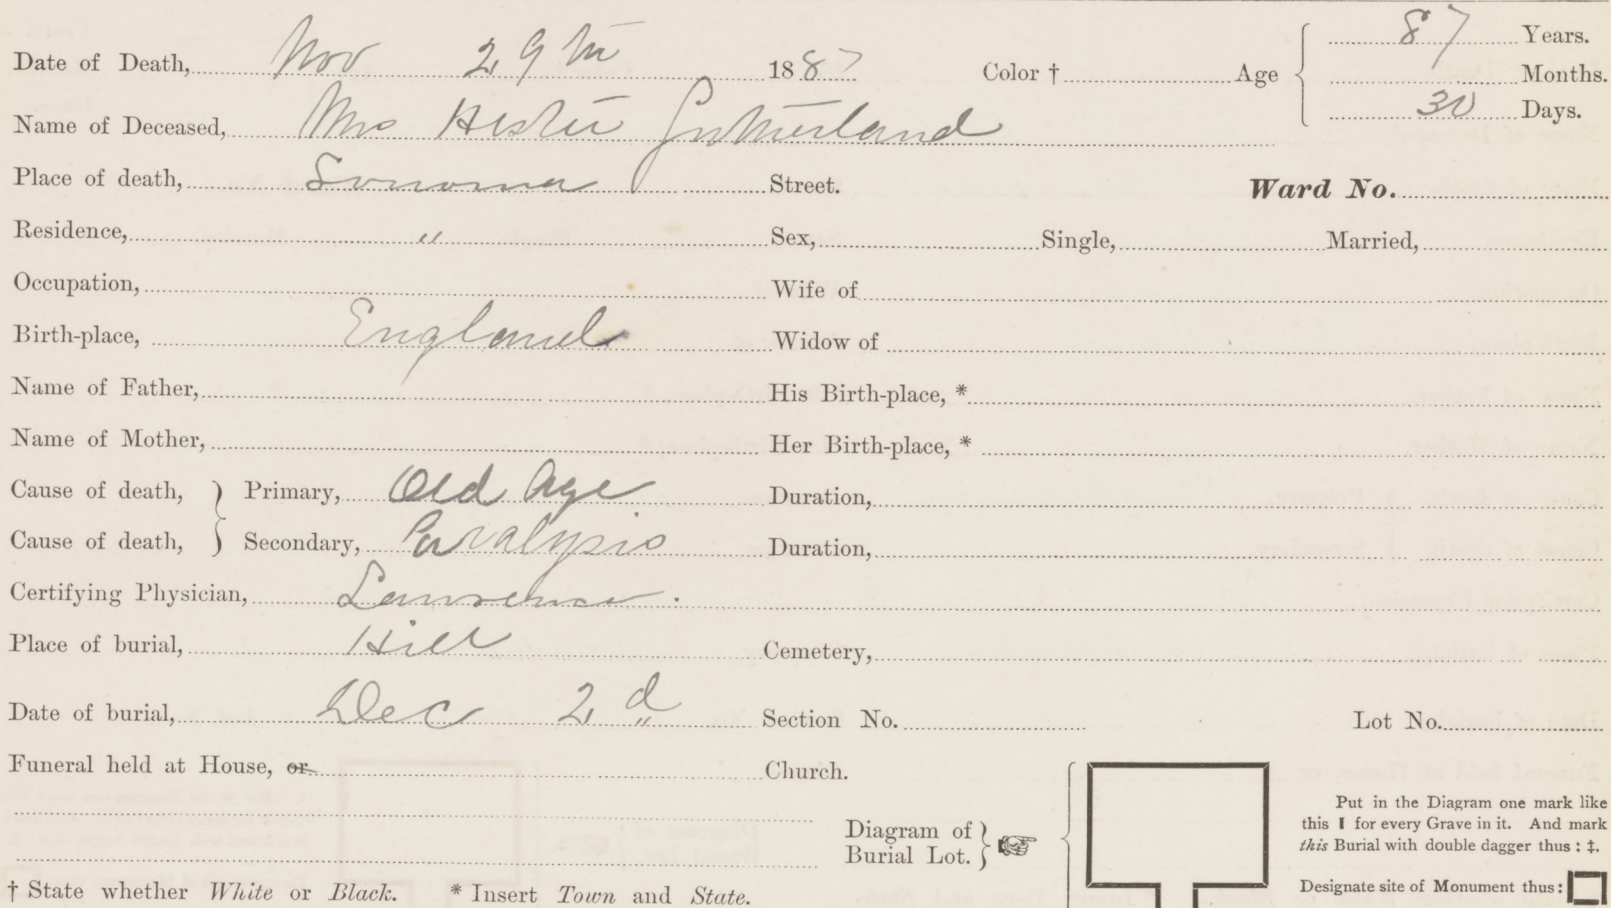 Date of Death, Nov 29th 1887 Color † Age 87 Years.
Months.
Name of Deceased, Mrs Hester Sutherland 30 Days.
Place of death, Sonoma Street. Ward No.
Residence, " Sex, Single, Married,
Occupation, Wife of
Birth-place, England Widow of
Name of Father, His Birth-place, *
Name of Mother, Her Birth-place, *
Cause of death, } Primary, Old Age Duration,
Cause of death, } Secondary, Paralysis Duration,
Certifying Physician, Lawrence.
Place of burial, Hill Cemetery,
Date of burial, Dec 2d Section No. Lot No.
Funeral held at House, or Church.
Diagram of
Burial Lot. }
Put in the Diagram one mark like
this I for every Grave in it. And mark
this Burial with double dagger thus : ‡.
Designate site of Monument thus:
† State whether White or Black. * Insert Town and State.